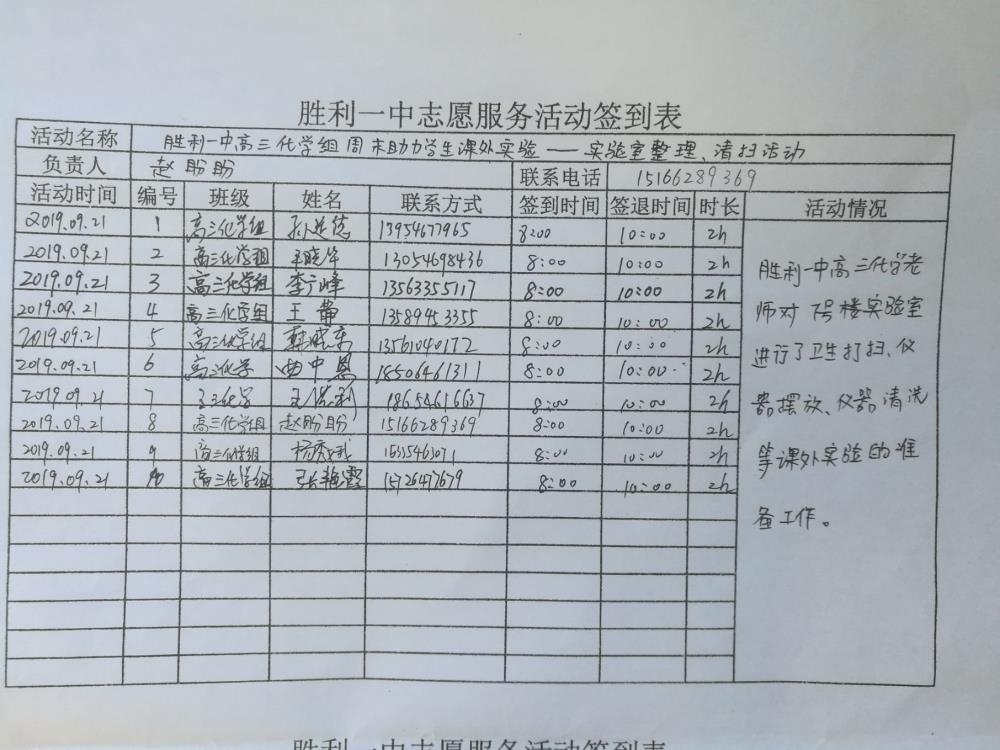 胜利一中志愿服务活动签到表
活动名称 胜利一中高三化学组周末助力学生课外实验——实验室整理、清扫活动
负责人 赵盼盼 联系电话 15166289369
活动时间 编号 班级 姓名 联系方式 签到时间 签退时间 时长 活动情况
2019.09.21 1 高三化学组 13954677965 8:00 10:00 2h
2019.09.21 2 高三化学组 王晓华 13054698436 8:00 10:00 2h
2019.09.21 3 高三化学组 李广峰 13563355117 8:00 10:00 2h
2019.09.21 4 高三化学组 王静 13589453355 8:00 10:00 2h
2019.09.21 5 高三化学组 韩晓东 13561040172 8:00 10:00 2h
2019.09.21 6 高三化学 曲中恩 18506461311 8:00 10:00 2h
2019.09.21 7 高三化学 18654616637 8:00 10:00 2h
2019.09.21 8 高三化学组 赵盼盼 15166289369 8:00 10:00 2h
2019.09.21 9 高三化学组 8:00 10:00 2h
2019.09.21 10 高三化学组 张艳霞 15726477679 8:00 10:00 2h
胜利一中高三化学老
师对1号楼实验室
进行了卫生打扫、仪
器摆放、仪器清洗
等课外实验的准
备工作。
胜利一中志愿服务活动签到表